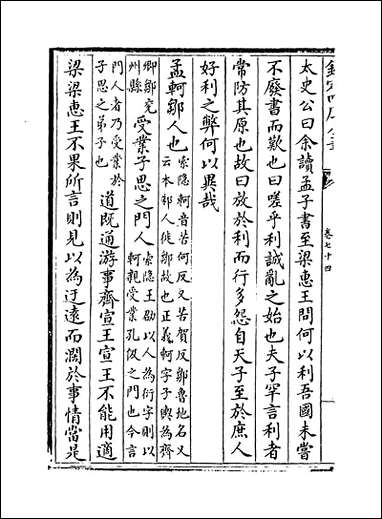 欽定四庫全書
卷七十四
太史公曰余讀孟子書至梁惠王問何以利吾國未嘗
不廢書而歎也曰嗟乎利誠亂之始也夫子罕言利者
常防其原也故曰放於利而行多怨自天子至於庶人
好利之弊何以異哉
孟軻鄒人也索隱軻音苦何反又苦賀反鄒魯地名又
云本邾人徙鄒故也正義軻字子輿為齊
卿鄒兖
州縣受業子思之門人索隱王劭以人為衍字則以
軻親受業孔伋之門也今言
門人者乃受業於
子思之弟子也道既通游事齊宣王宣王不能用適
梁梁惠王不果所言則見以為迂遠而濶於事情當是